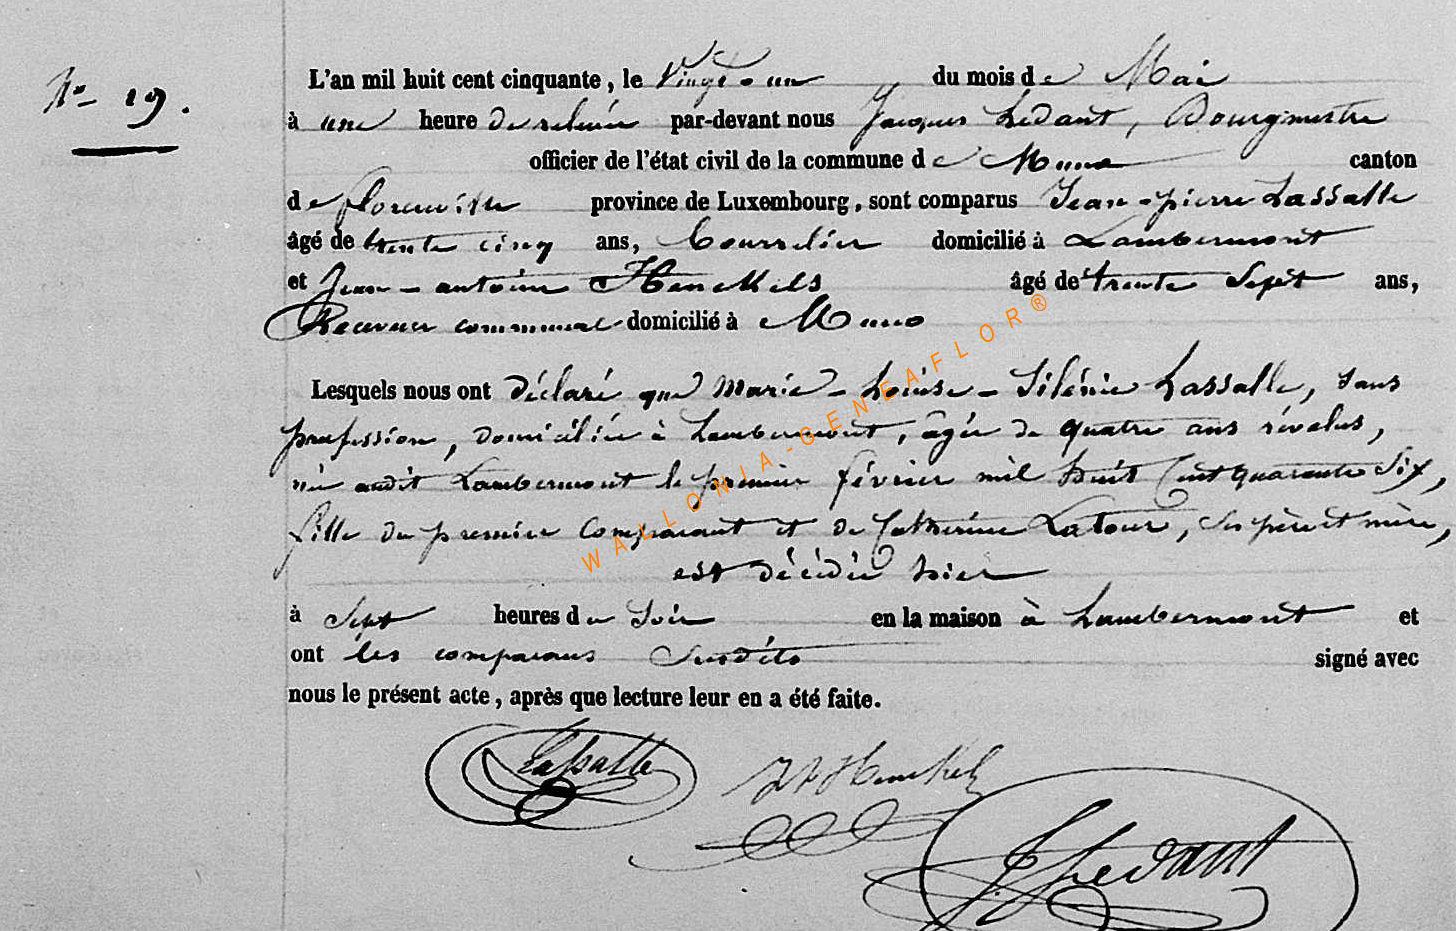 N° 19.
L'an mil huit cent cinquante, le Vingt-un du mois de Mai
à une heure de relevée par-devant nous Jacques Lédant, Bourgmestre
officier de l'état civil de la commune de Muno canton
de florenville province de Luxembourg, sont comparus Jean-pierre Lassalle
âgé de trente cinq ans, Bourrelier domicilié à Lambermont
et Jean-antoine Henckels âgé de trente Sept ans,
Receveur communal domicilié à Muno
Lesquels nous ont déclaré que Marie-Louise-Silénie Lassalle, sans
profession, domiciliée à Lambermont, âgée de quatre ans révolus,
née audit Lambermont le premier février mil huit Cent quarante Six,
fille du premier comparant et de Catherine Latour, Ses père et mère,
est décédée hier
à Sept heures du Soir en la maison à Lambermont et
ont les comparans Susdits signé avec
nous le présent acte, après que lecture leur en a été faite.
Lassalle
Henckels
J. Lédant
WALLONIA-GENEAFLOR®